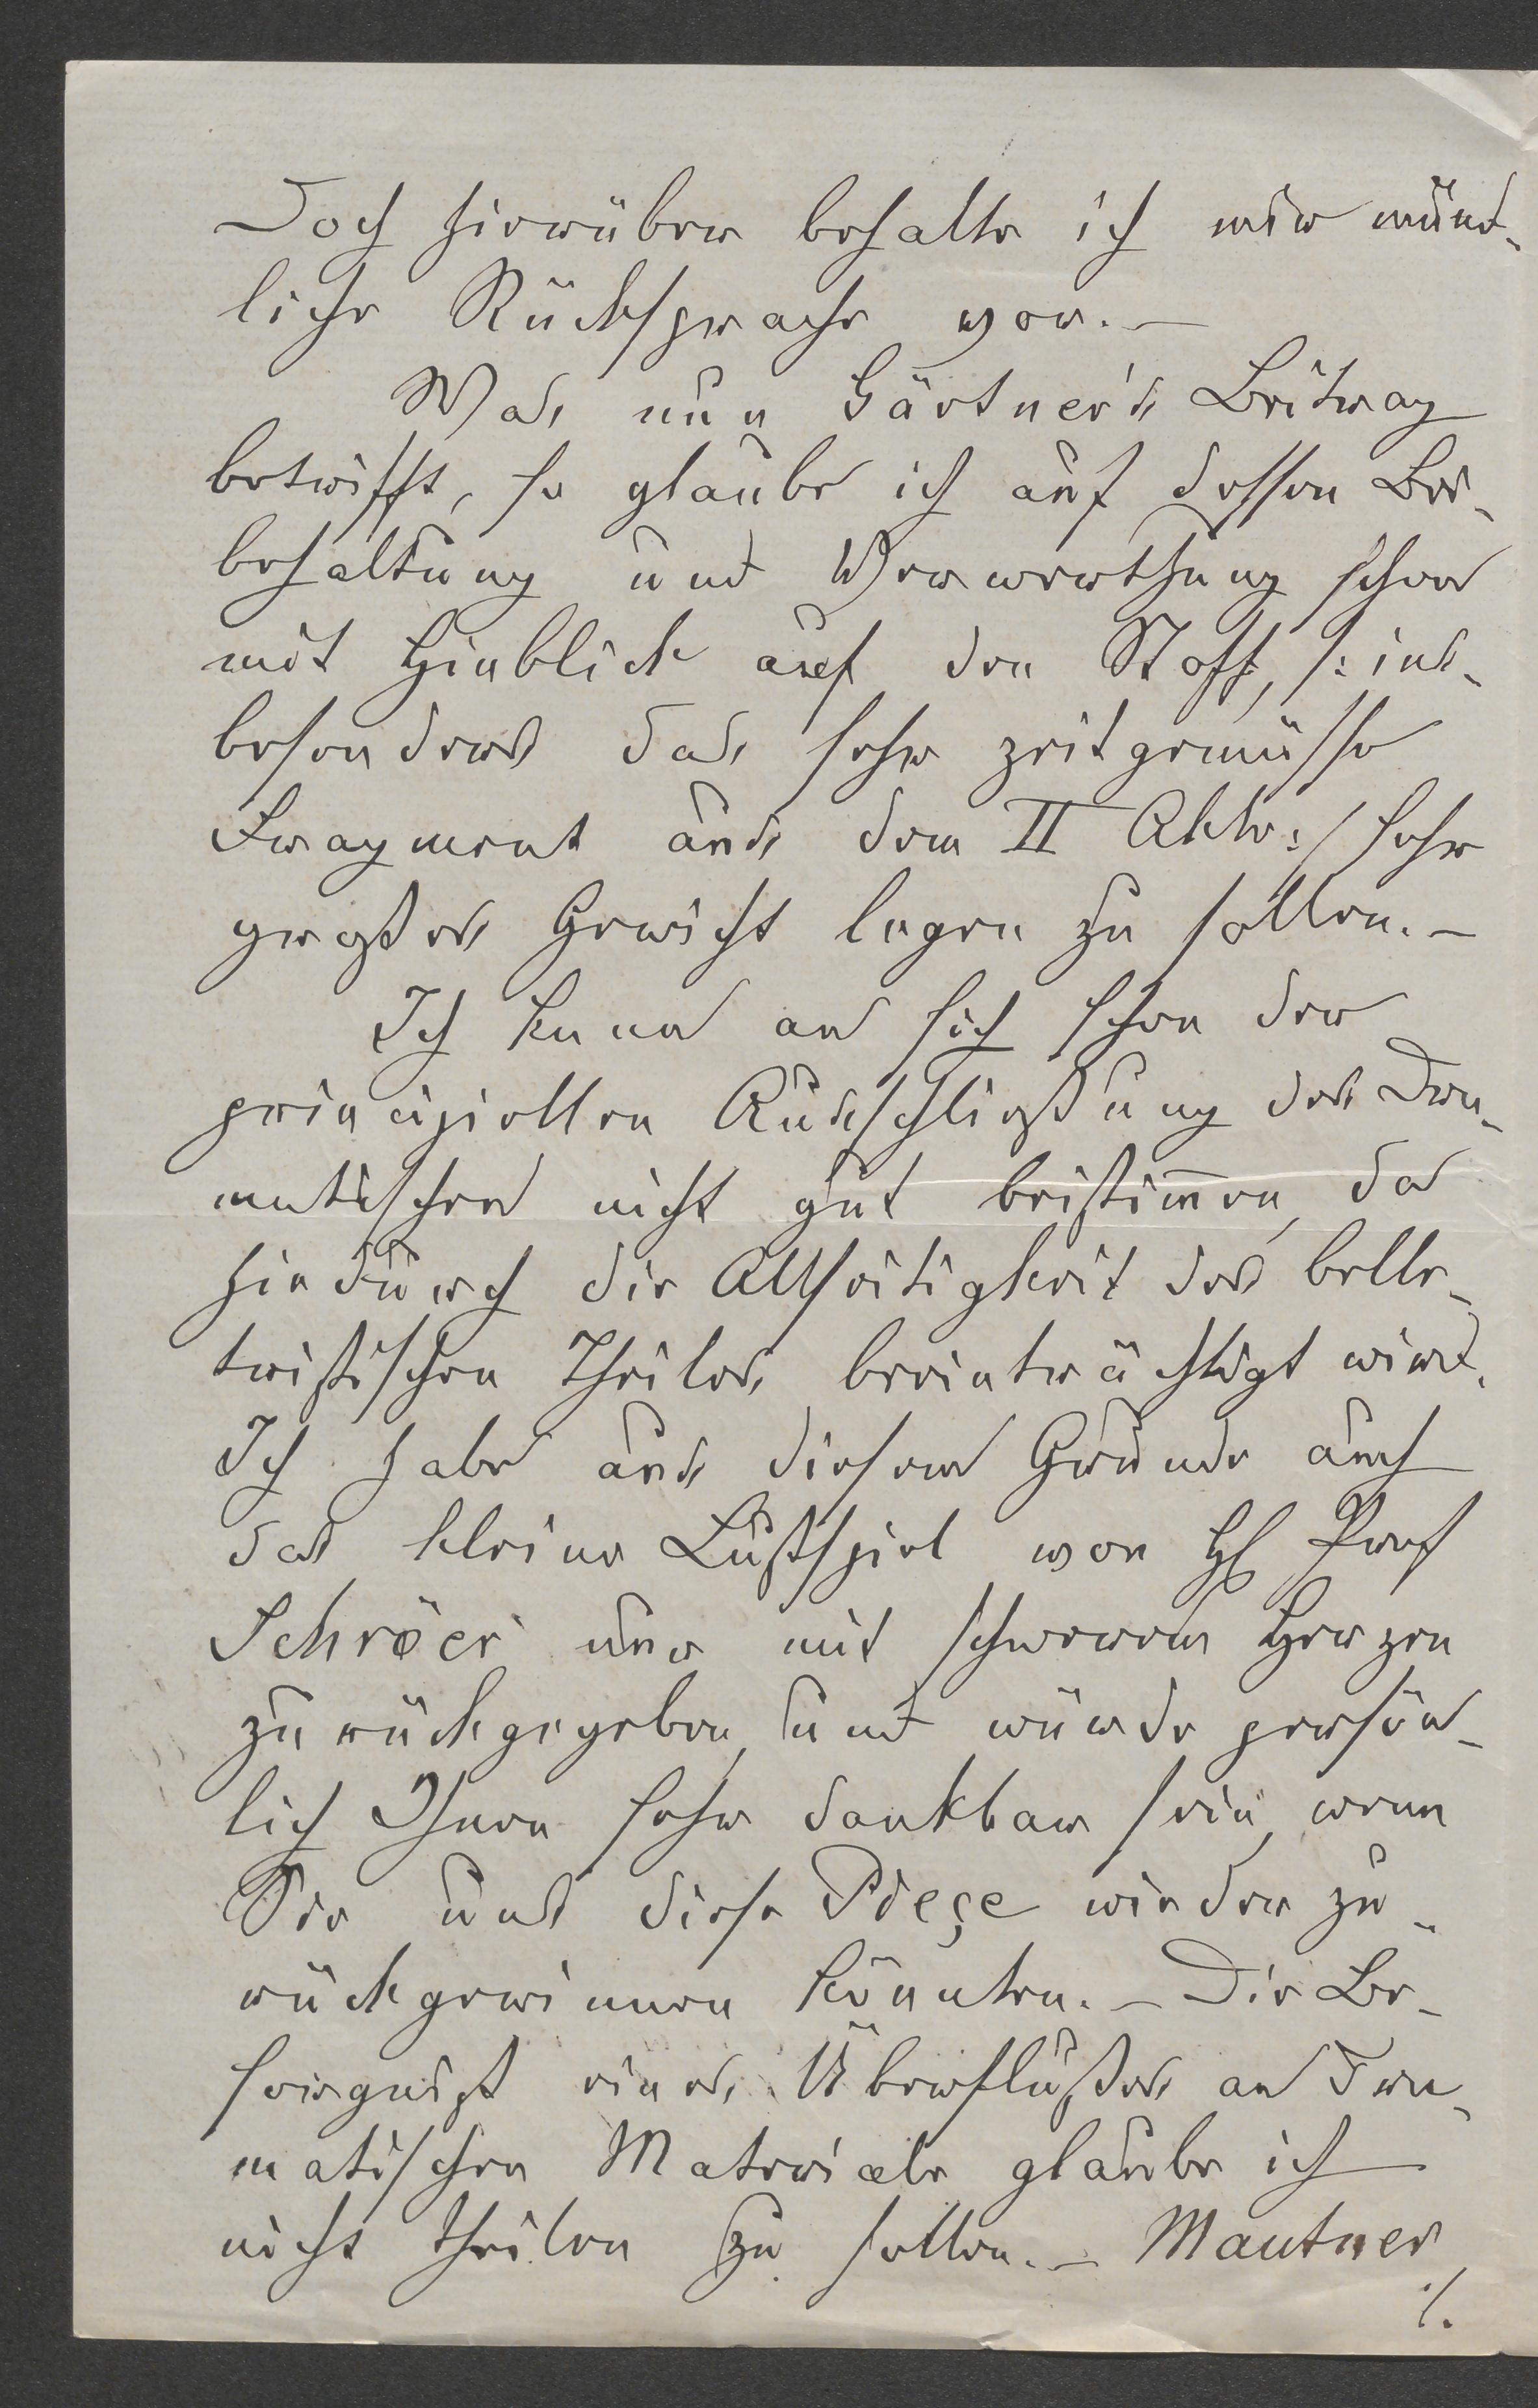 Doch hierüber behalte ich mir münd-
liche Rücksprache vor. –
Was nun Gärtner's Beitrag
betrifft, so glaube ich auf dessen Bei-
behaltung und Verwerthung schon
mit Hinblick auf den Stoff, /: ins-
besonders das sehr zeitgemässe
Fragment aus dem II Akte :/ sehr
großes Gewicht legen zu sollen. –
Ich kann an sich schon der
principiellen Ausschließung des Dra-
matischen nicht gut beistim̄en, da
hiedurch die Allseitigkeit des belle-
tristischen Theiles beeinträchtigt wird.
Ich habe aus diesem Grunde auch
das kleine Lustspiel von H Prof
Schröer nur mit schwerem Herzen
zurückgegeben, und würde persön-
lich Ihnen sehr dankbar sein, wenn
Sie uns diese Pieçe wieder zu-
rückgewinnen könnten. – Die Be-
sorgniß eines Überflußes an dra-
matischen Materiale glaube ich
nicht theilen zu sollen. – Mautner
./.